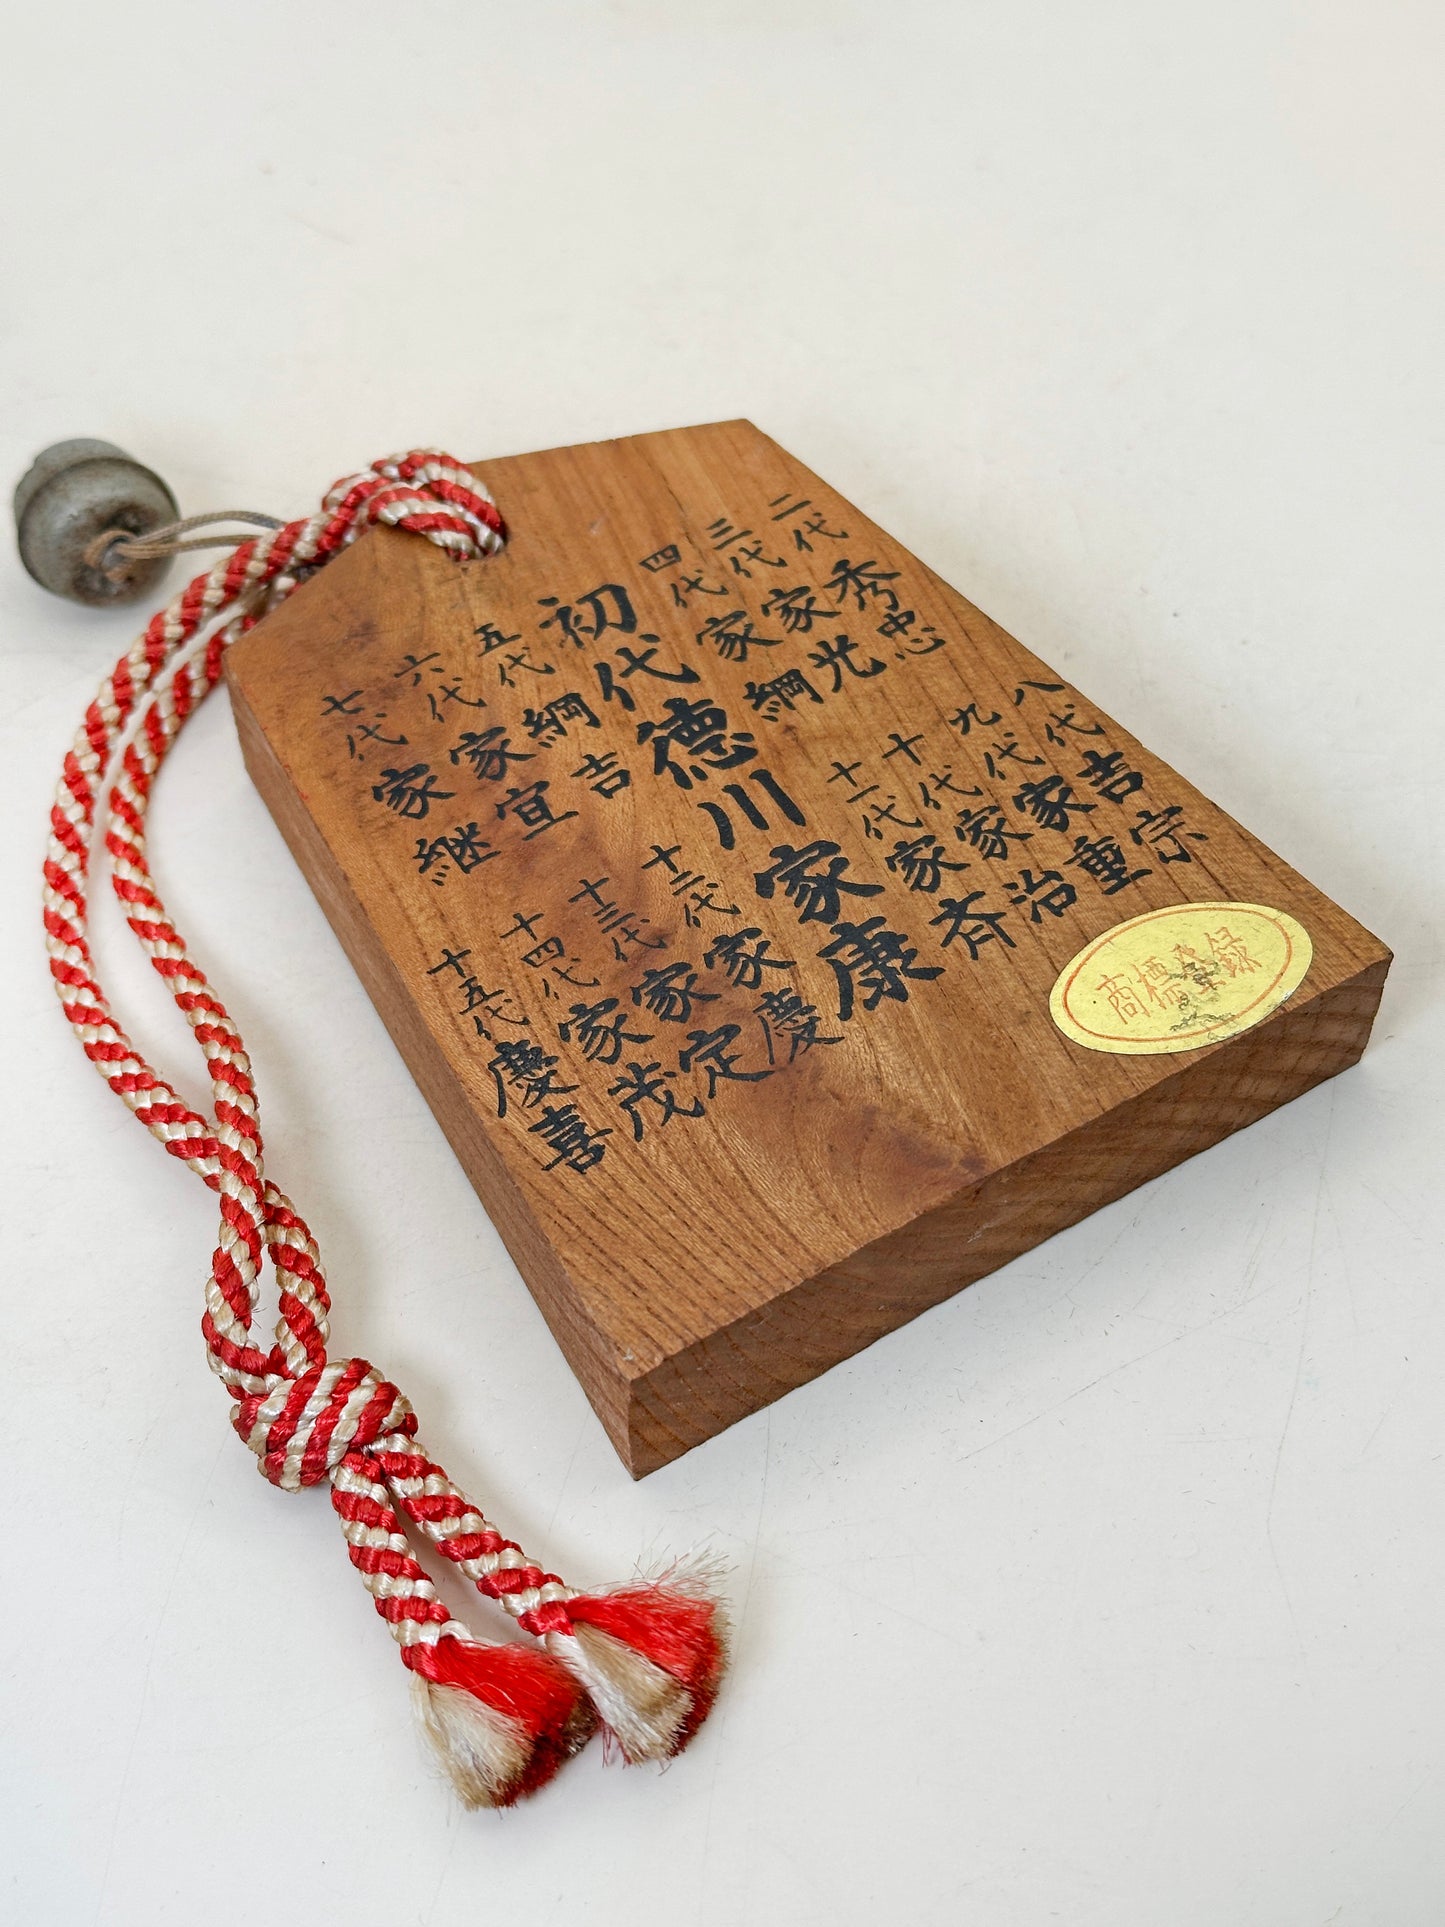 二代 秀忠
三代 家光
四代 家綱
初代 徳川家康
五代 綱吉
六代 家宣
七代 家継
八代 吉宗
九代 家重
十代 家治
十一代 家斉
十二代 家慶
十三代 家定
十四代 家茂
十五代 慶喜
商標登録